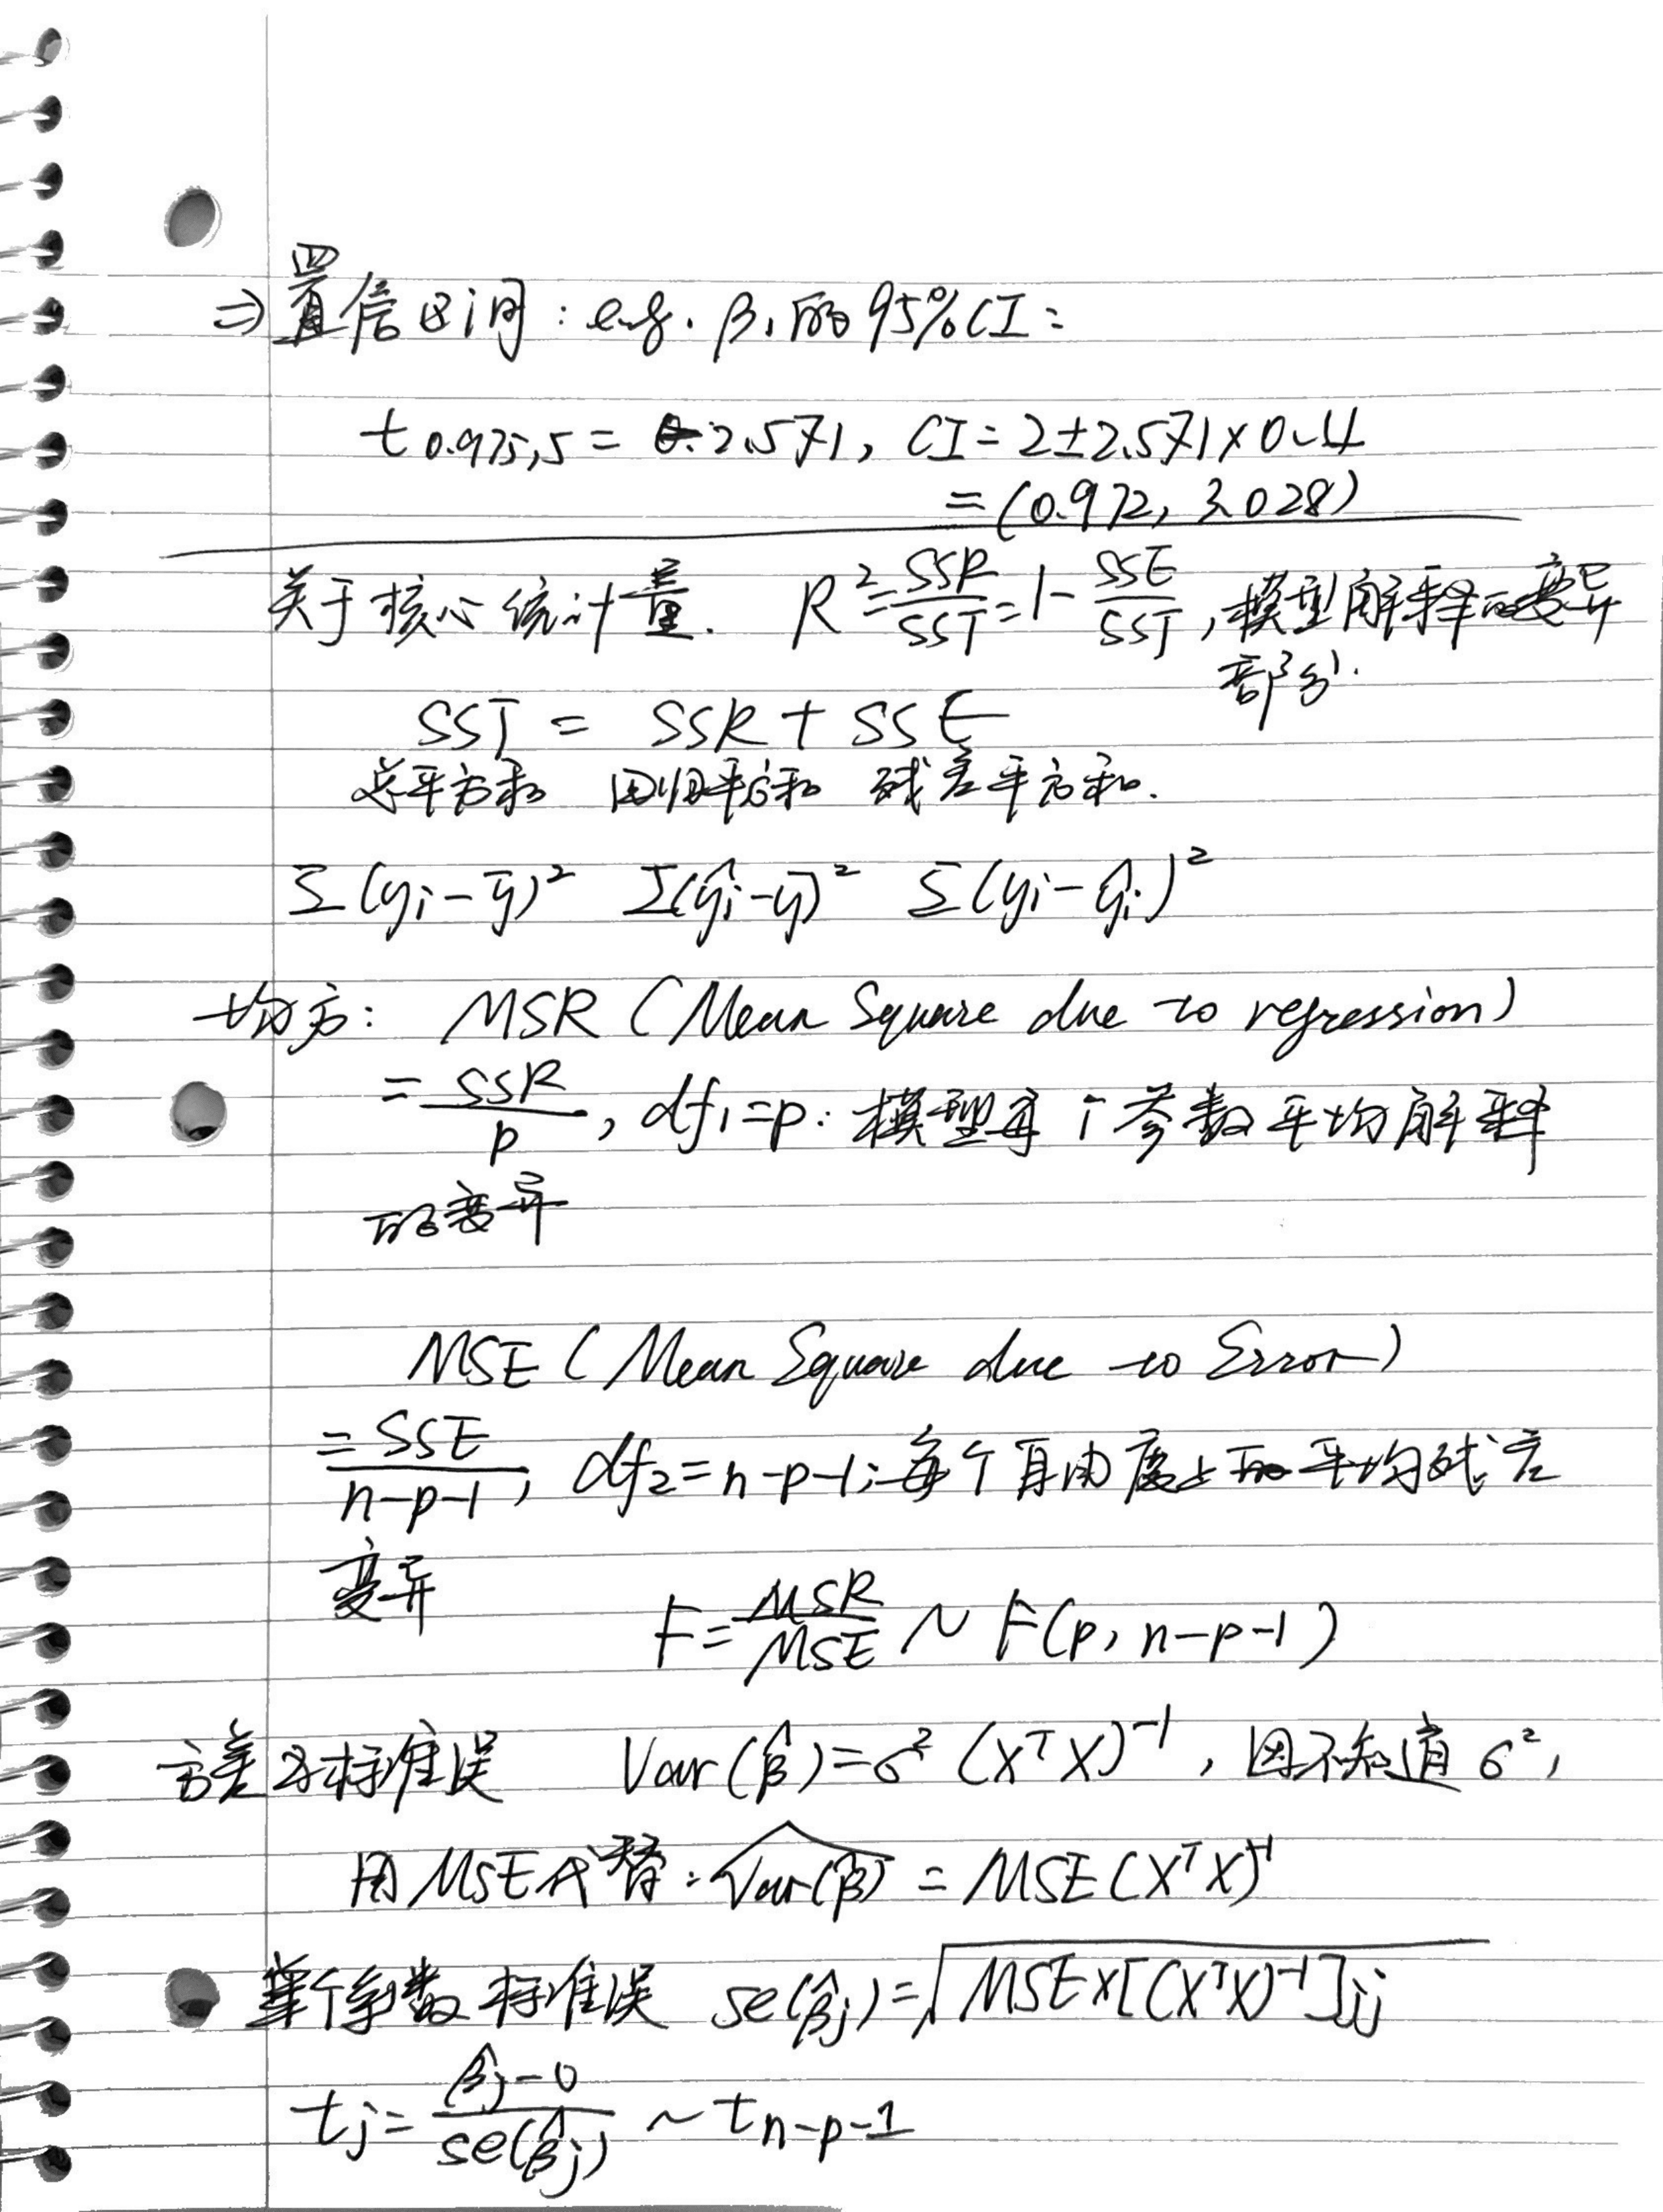 ⇒置信区间：e.g. β₁的95%CI：
t₀.₉₇₅,₅ = 2.571, CI = 2±2.571×0.4
= (0.972, 3.028)
关于核心统计量. R² = SSR/SST = 1 - SSE/SST, 模型解释的变异
部分.
SST = SSR + SSE
总平方和 回归平方和 残差平方和.
Σ(yi-ȳ)² Σ(ŷi-ȳ)² Σ(yi-ŷi)²
均方： MSR (Mean Square due to regression)
= SSR/p, df₁=p: 模型每个参数平均解释
的变异
MSE (Mean Square due to Error)
= SSE/(n-p-1), df₂=n-p-1: 每个自由度上的平均残差
变异
F = MSR/MSE ~ F(p, n-p-1)
方差及标准误 Var(β̂)=σ²(XᵀX)⁻¹, 因不知道σ²,
用MSE代替: \widehat{Var(β̂)} = MSE(XᵀX)⁻¹
单个系数标准误 se(β̂j)=√(MSE×[(XᵀX)⁻¹]jj)
tj = (β̂j-0)/se(β̂j) ~ t n-p-1